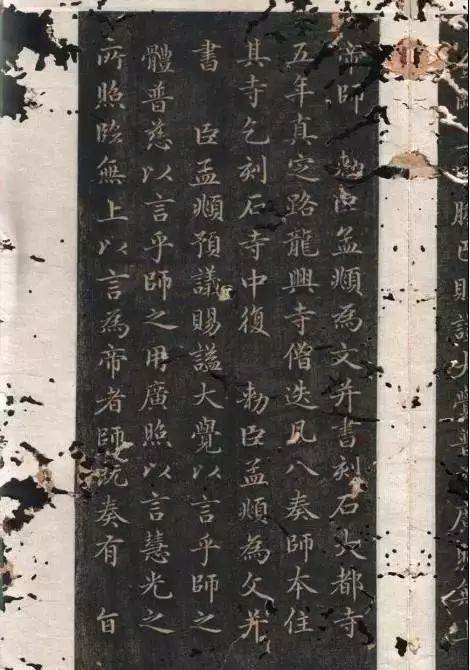 帝師　勑臣孟頫為文并書刻石大都寺
五年真定路龍興寺僧迭凡八奏師本住
其寺乞刻石寺中復　勑臣孟頫為文并
書　臣孟頫預議賜謚大覺以言乎師之
體普慈以言乎師之用廣照以言慧光之
所照臨無上以言為帝者師既奏有　旨